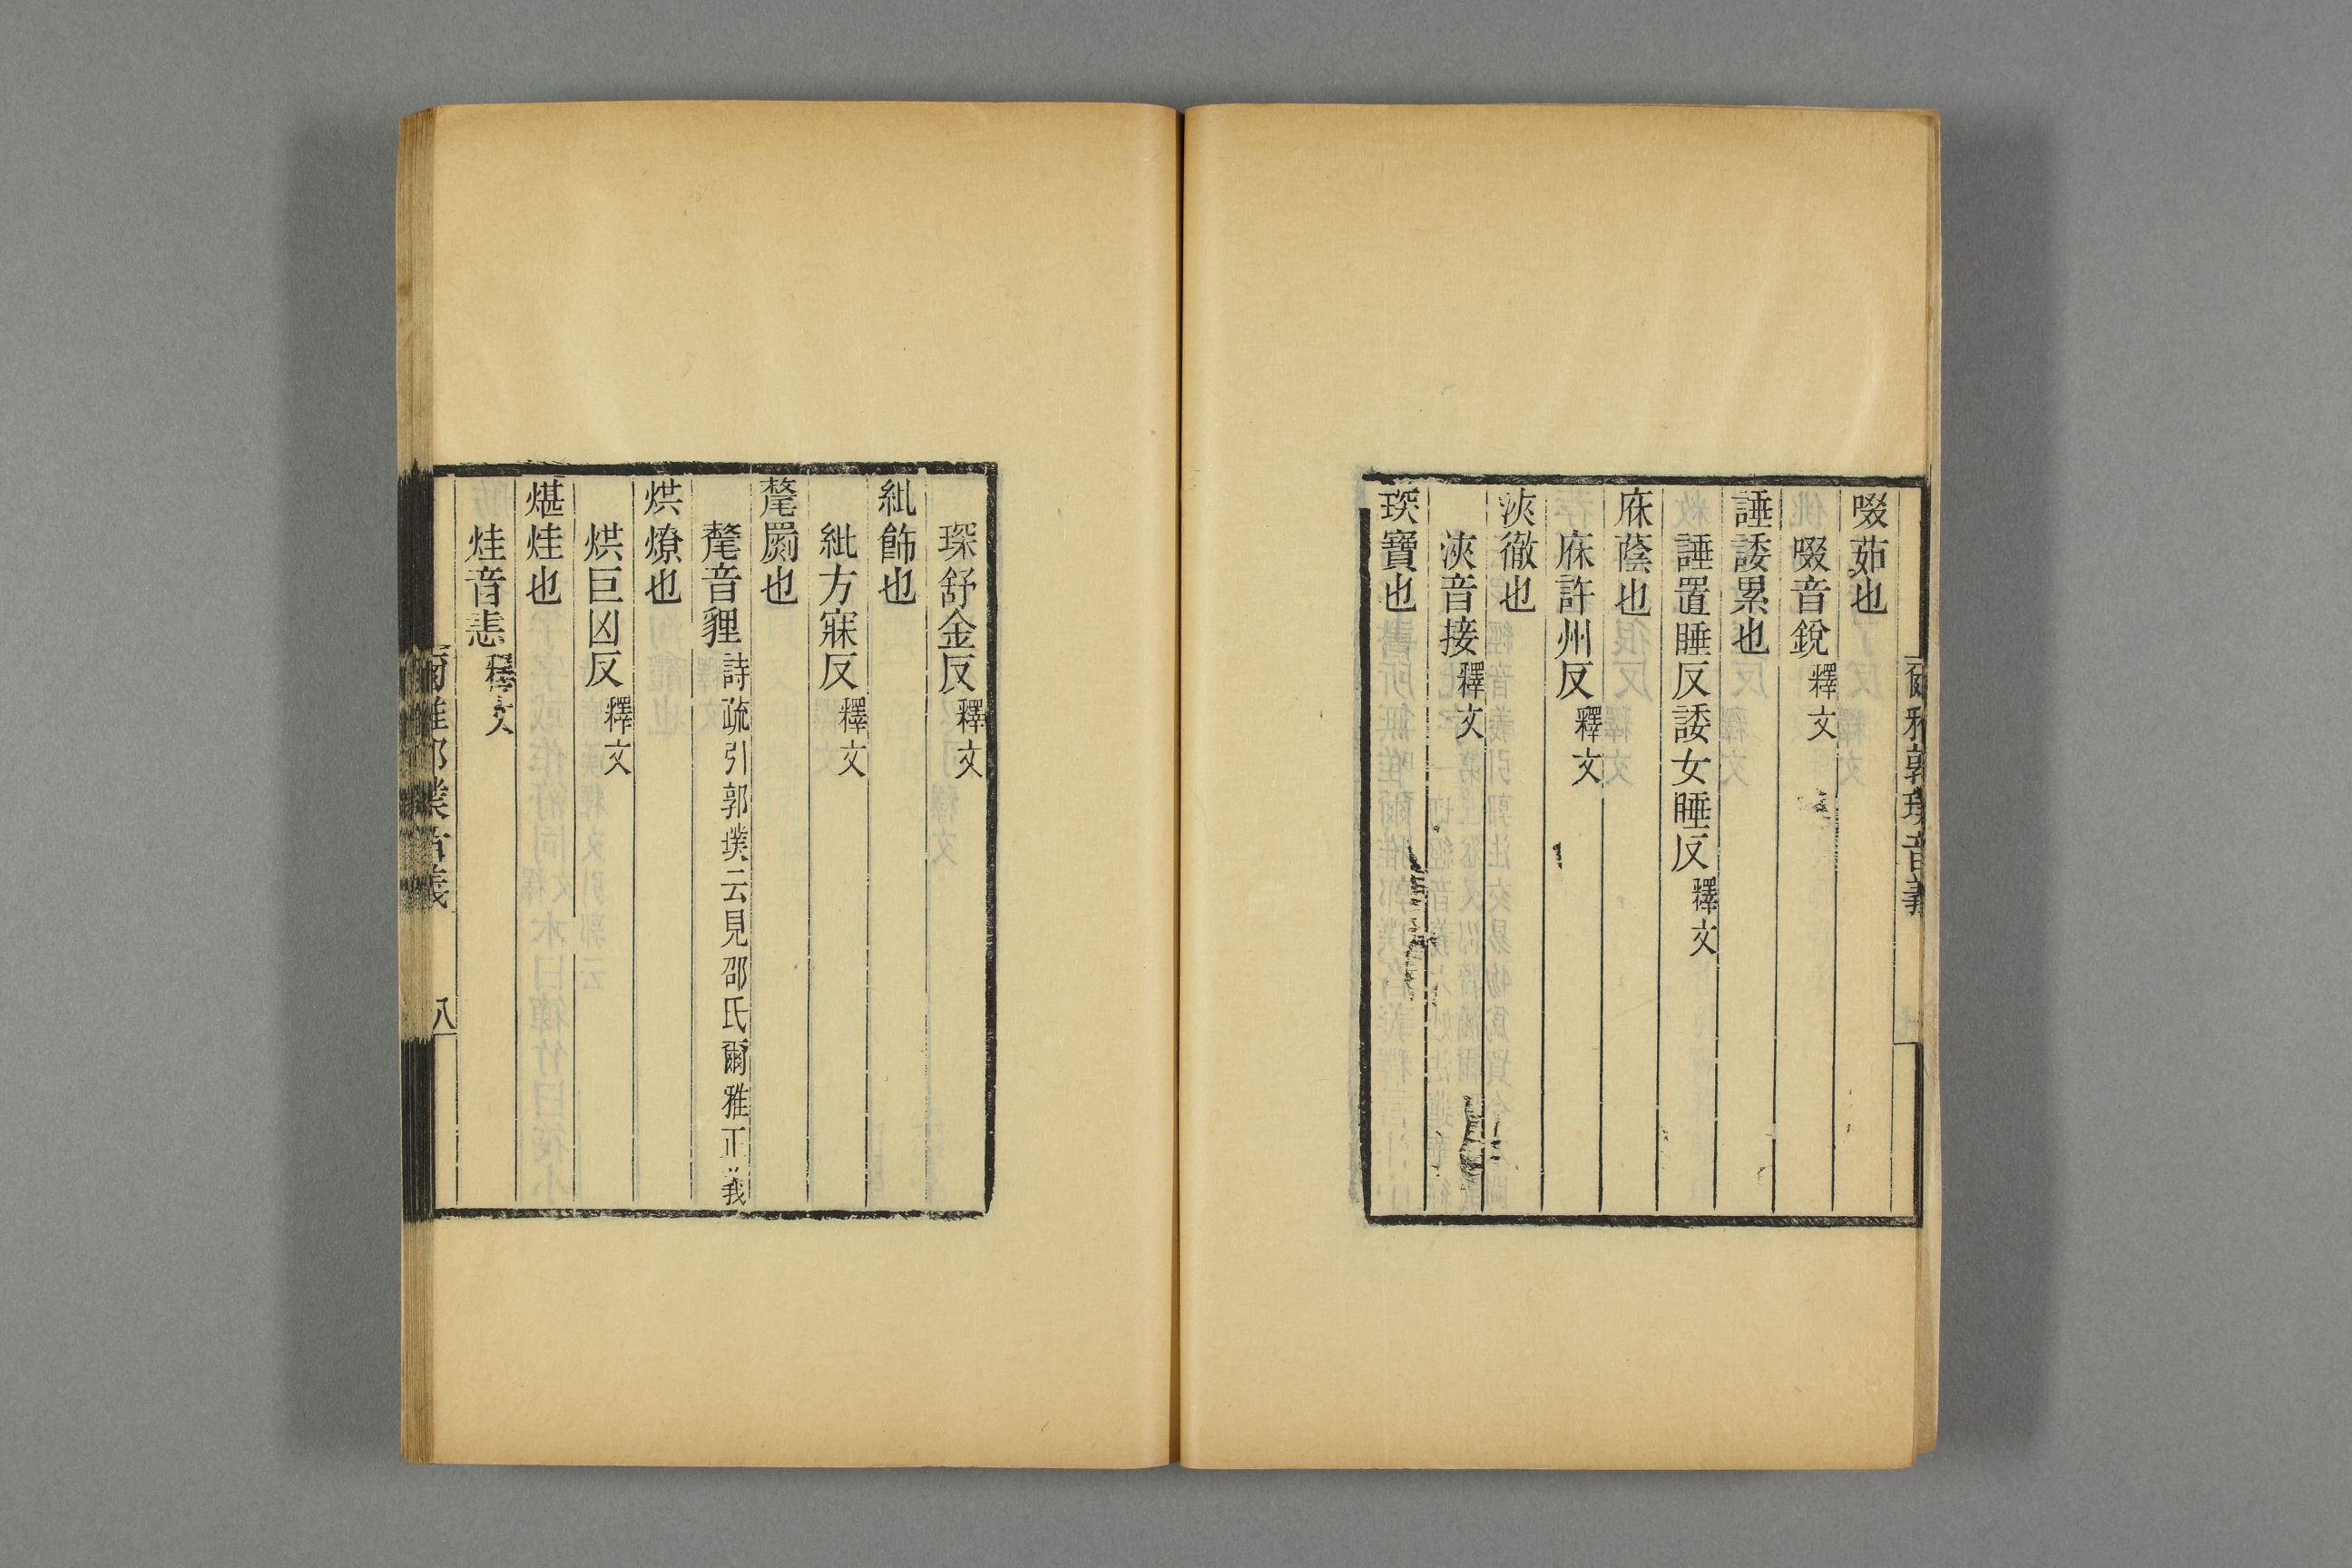 爾雅郭璞音義
啜茹也
啜音銳釋文
諈諉累也
諈置睡反諉女睡反釋文
庥蔭也
庥許州反釋文
浹徹也
浹音接釋文
琛寶也
琛舒金反釋文
紕飾也
紕方寐反釋文
氂罽也
氂音貍詩疏引郭璞云見邵氏爾雅正義
烘燎也
烘巨凶反釋文
煁烓也
烓音恚釋文
爾雅郭璞音義
八